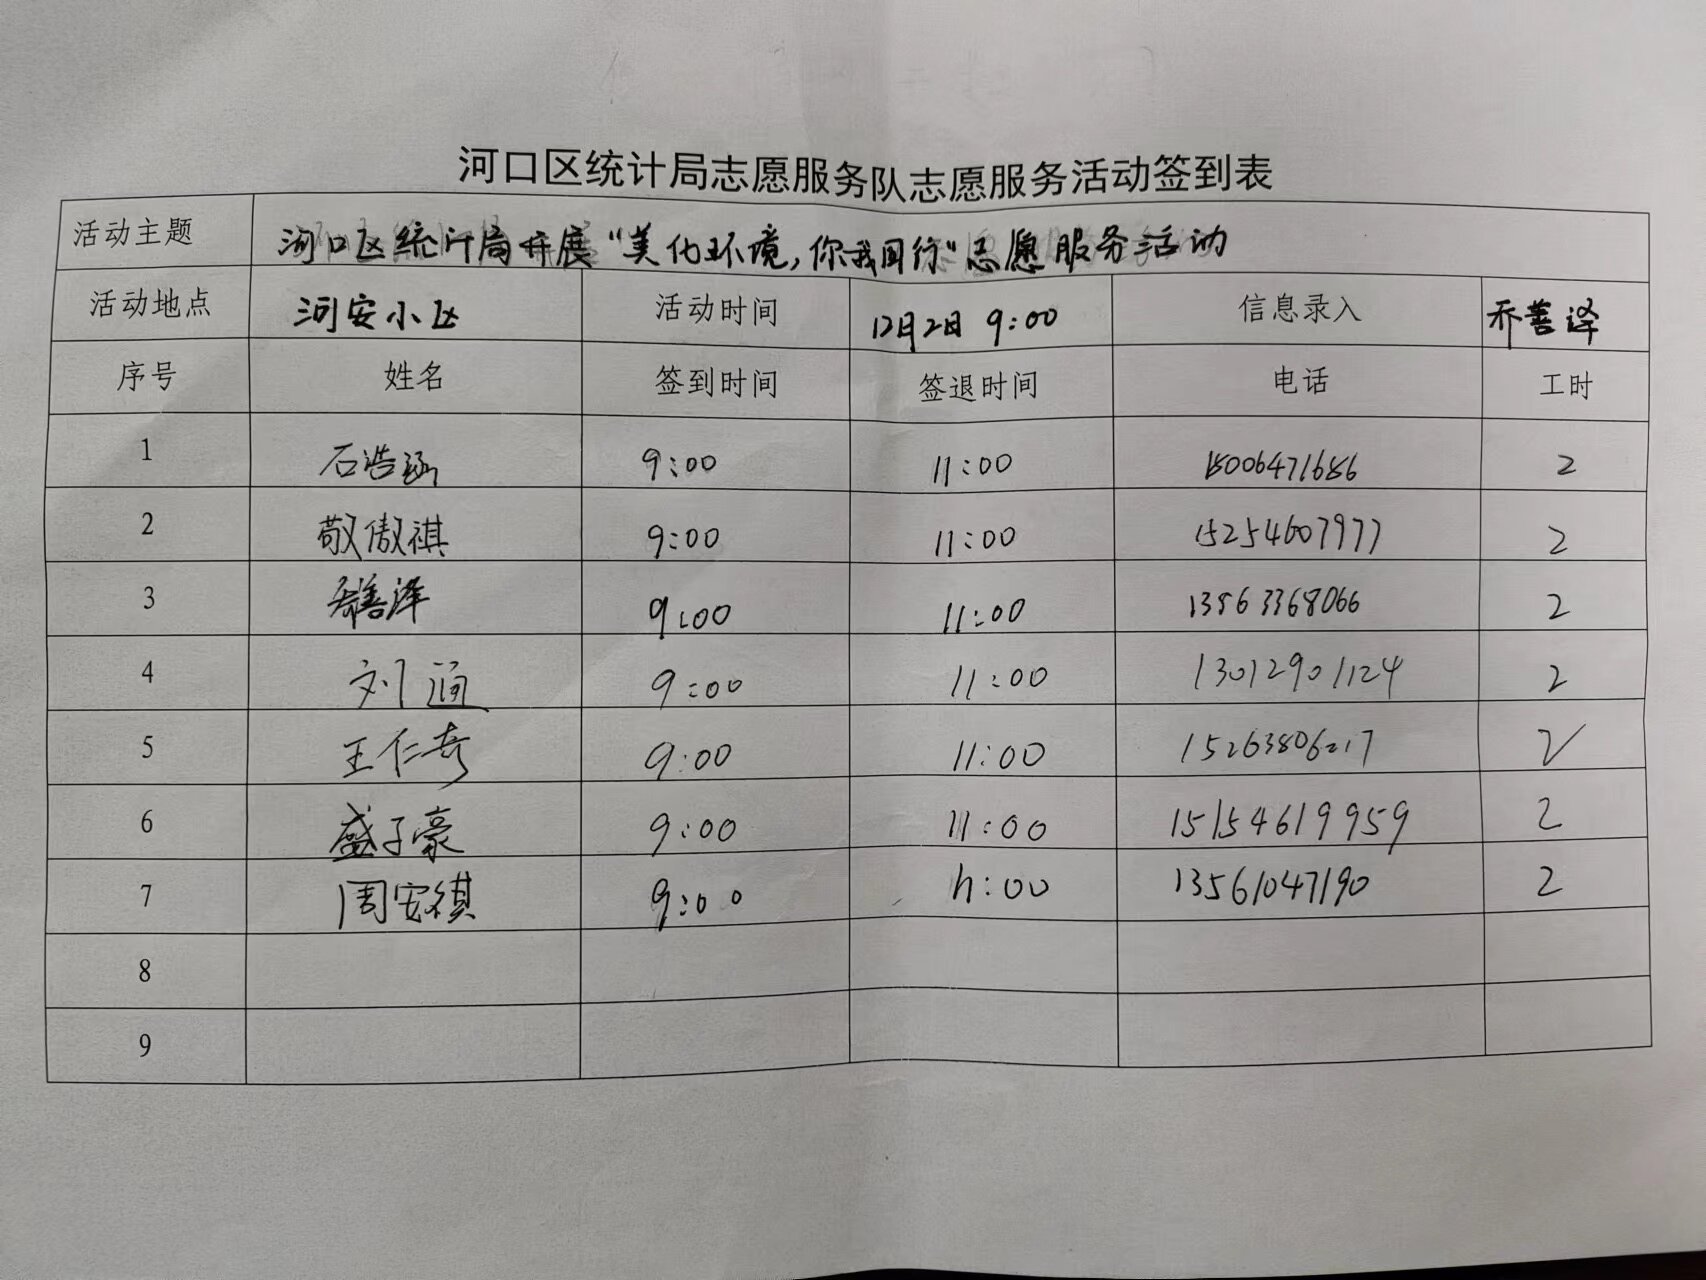 河口区统计局志愿服务队志愿服务活动签到表
活动主题 河口区统计局开展“美化环境,你我同行”志愿服务活动
活动地点 河安小区 活动时间 12月2日 9:00 信息录入 乔善泽
序号 姓名 签到时间 签退时间 电话 工时
1 石浩涵 9:00 11:00 2
2 敬傲祺 9:00 11:00 15254607977 2
3 乔善泽 9:00 11:00 13563368066 2
4 刘涵 9:00 11:00 13012901124 2
5 王仁奇 9:00 11:00 15263806217 2
6 盛子豪 9:00 11:00 15154619959 2
7 周安祺 9:00 11:00 13561047190 2
8
9